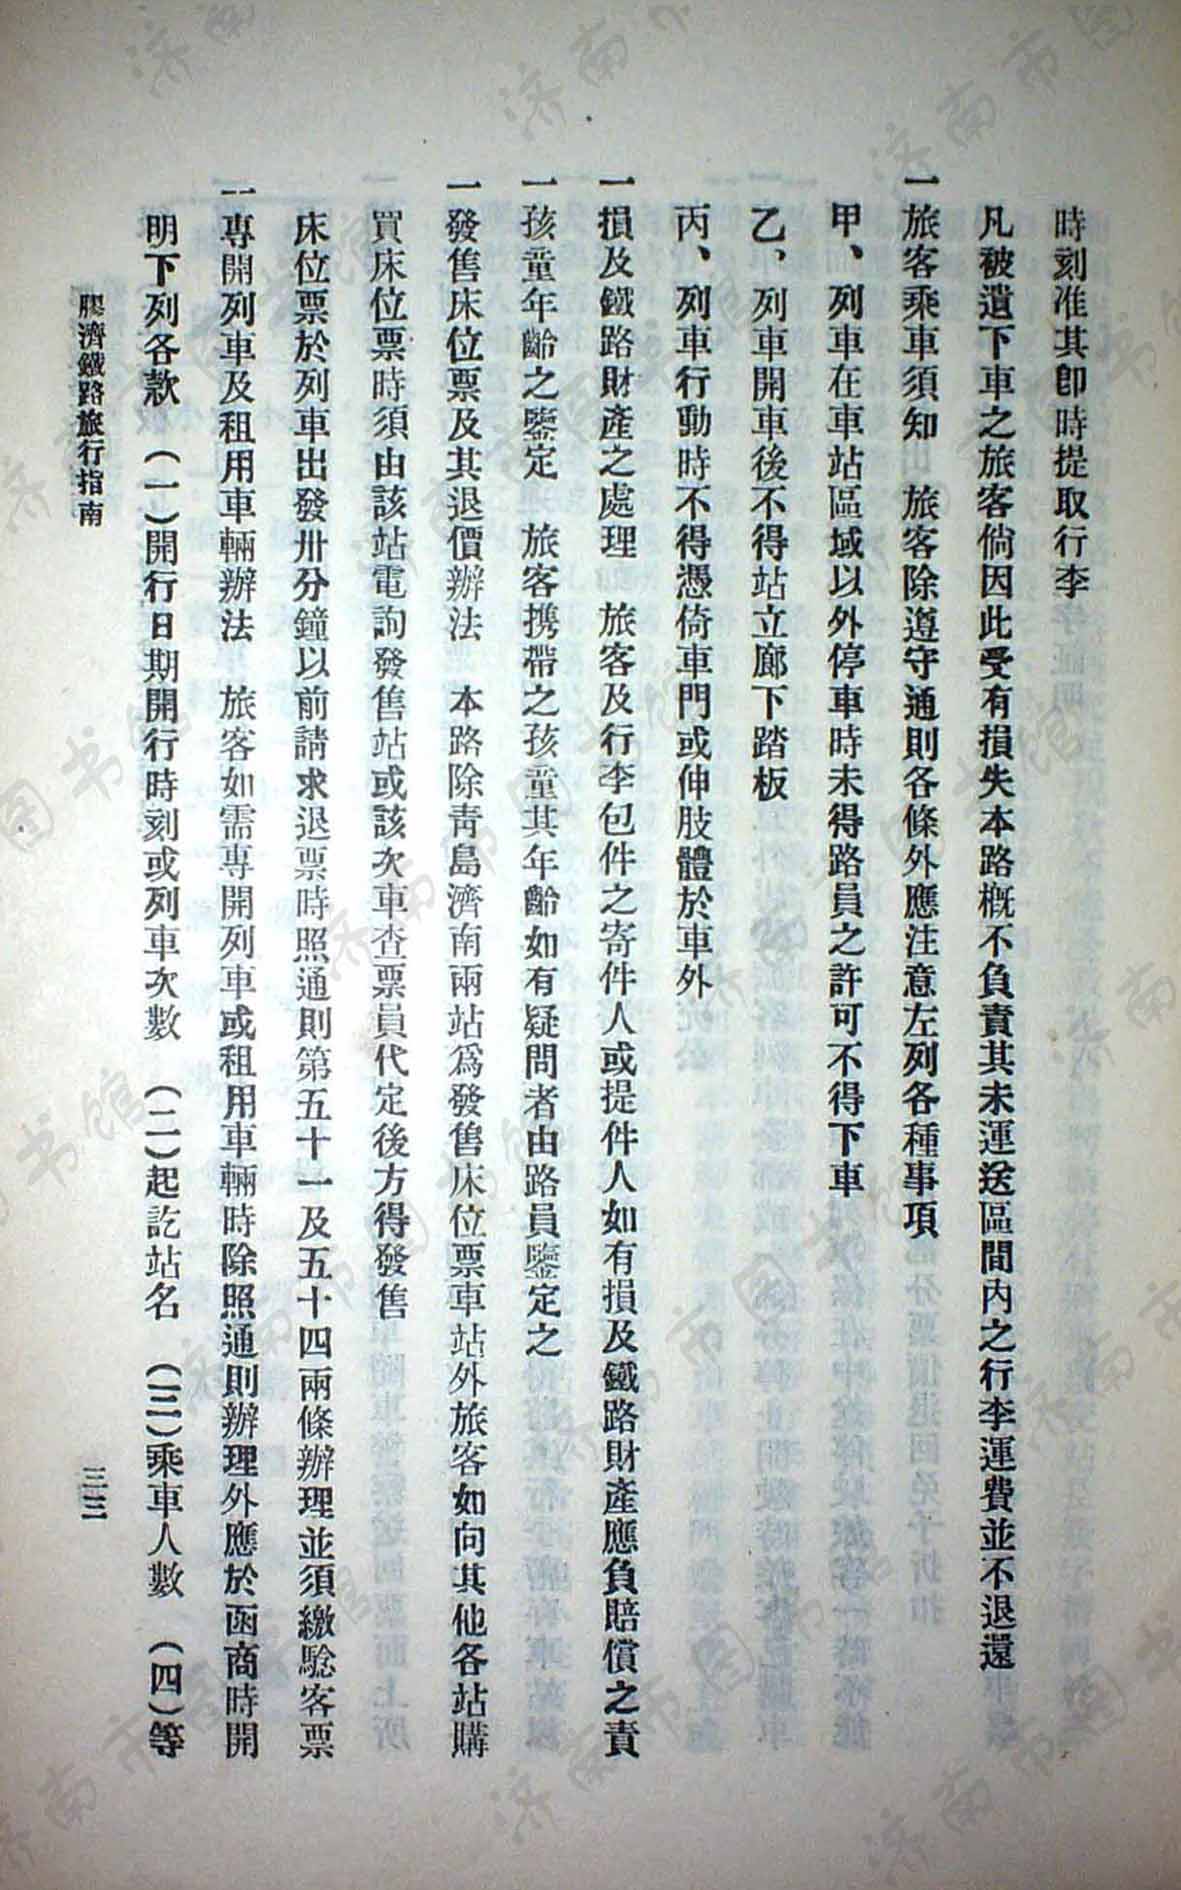 時刻准其卽時提取行李
凡被遺下車之旅客倘因此受有損失本路槪不負責其未運送區間內之行李運費並不退還
一旅客乘車須知　旅客除遵守通則各條外應注意左列各種事項
甲、列車在車站區域以外停車時未得路員之許可不得下車
乙、列車開車後不得站立廊下踏板
丙、列車行動時不得憑倚車門或伸肢體於車外
一損及鐵路財產之處理　旅客及行李包件之寄件人或提件人如有損及鐵路財產應負賠償之責
一孩童年齡之鑒定　旅客携帶之孩童其年齡如有疑問者由路員鑒定之
一發售床位票及其退價辦法　本路除靑島濟南兩站爲發售床位票車站外旅客如向其他各站購
買床位票時須由該站電詢發售站或該次車查票員代定後方得發售
床位票於列車出發卅分鐘以前請求退票時照通則第五十一及五十四兩條辦理並須繳騐客票
一專開列車及租用車輛辦法　旅客如需專開列車或租用車輛時除照通則辦理外應於函商時開
明下列各款　(一)開行日期開行時刻或列車次數　(二)起訖站名　(三)乘車人數　(四)等
膠濟鐵路旅行指南
三三
济南市图书馆